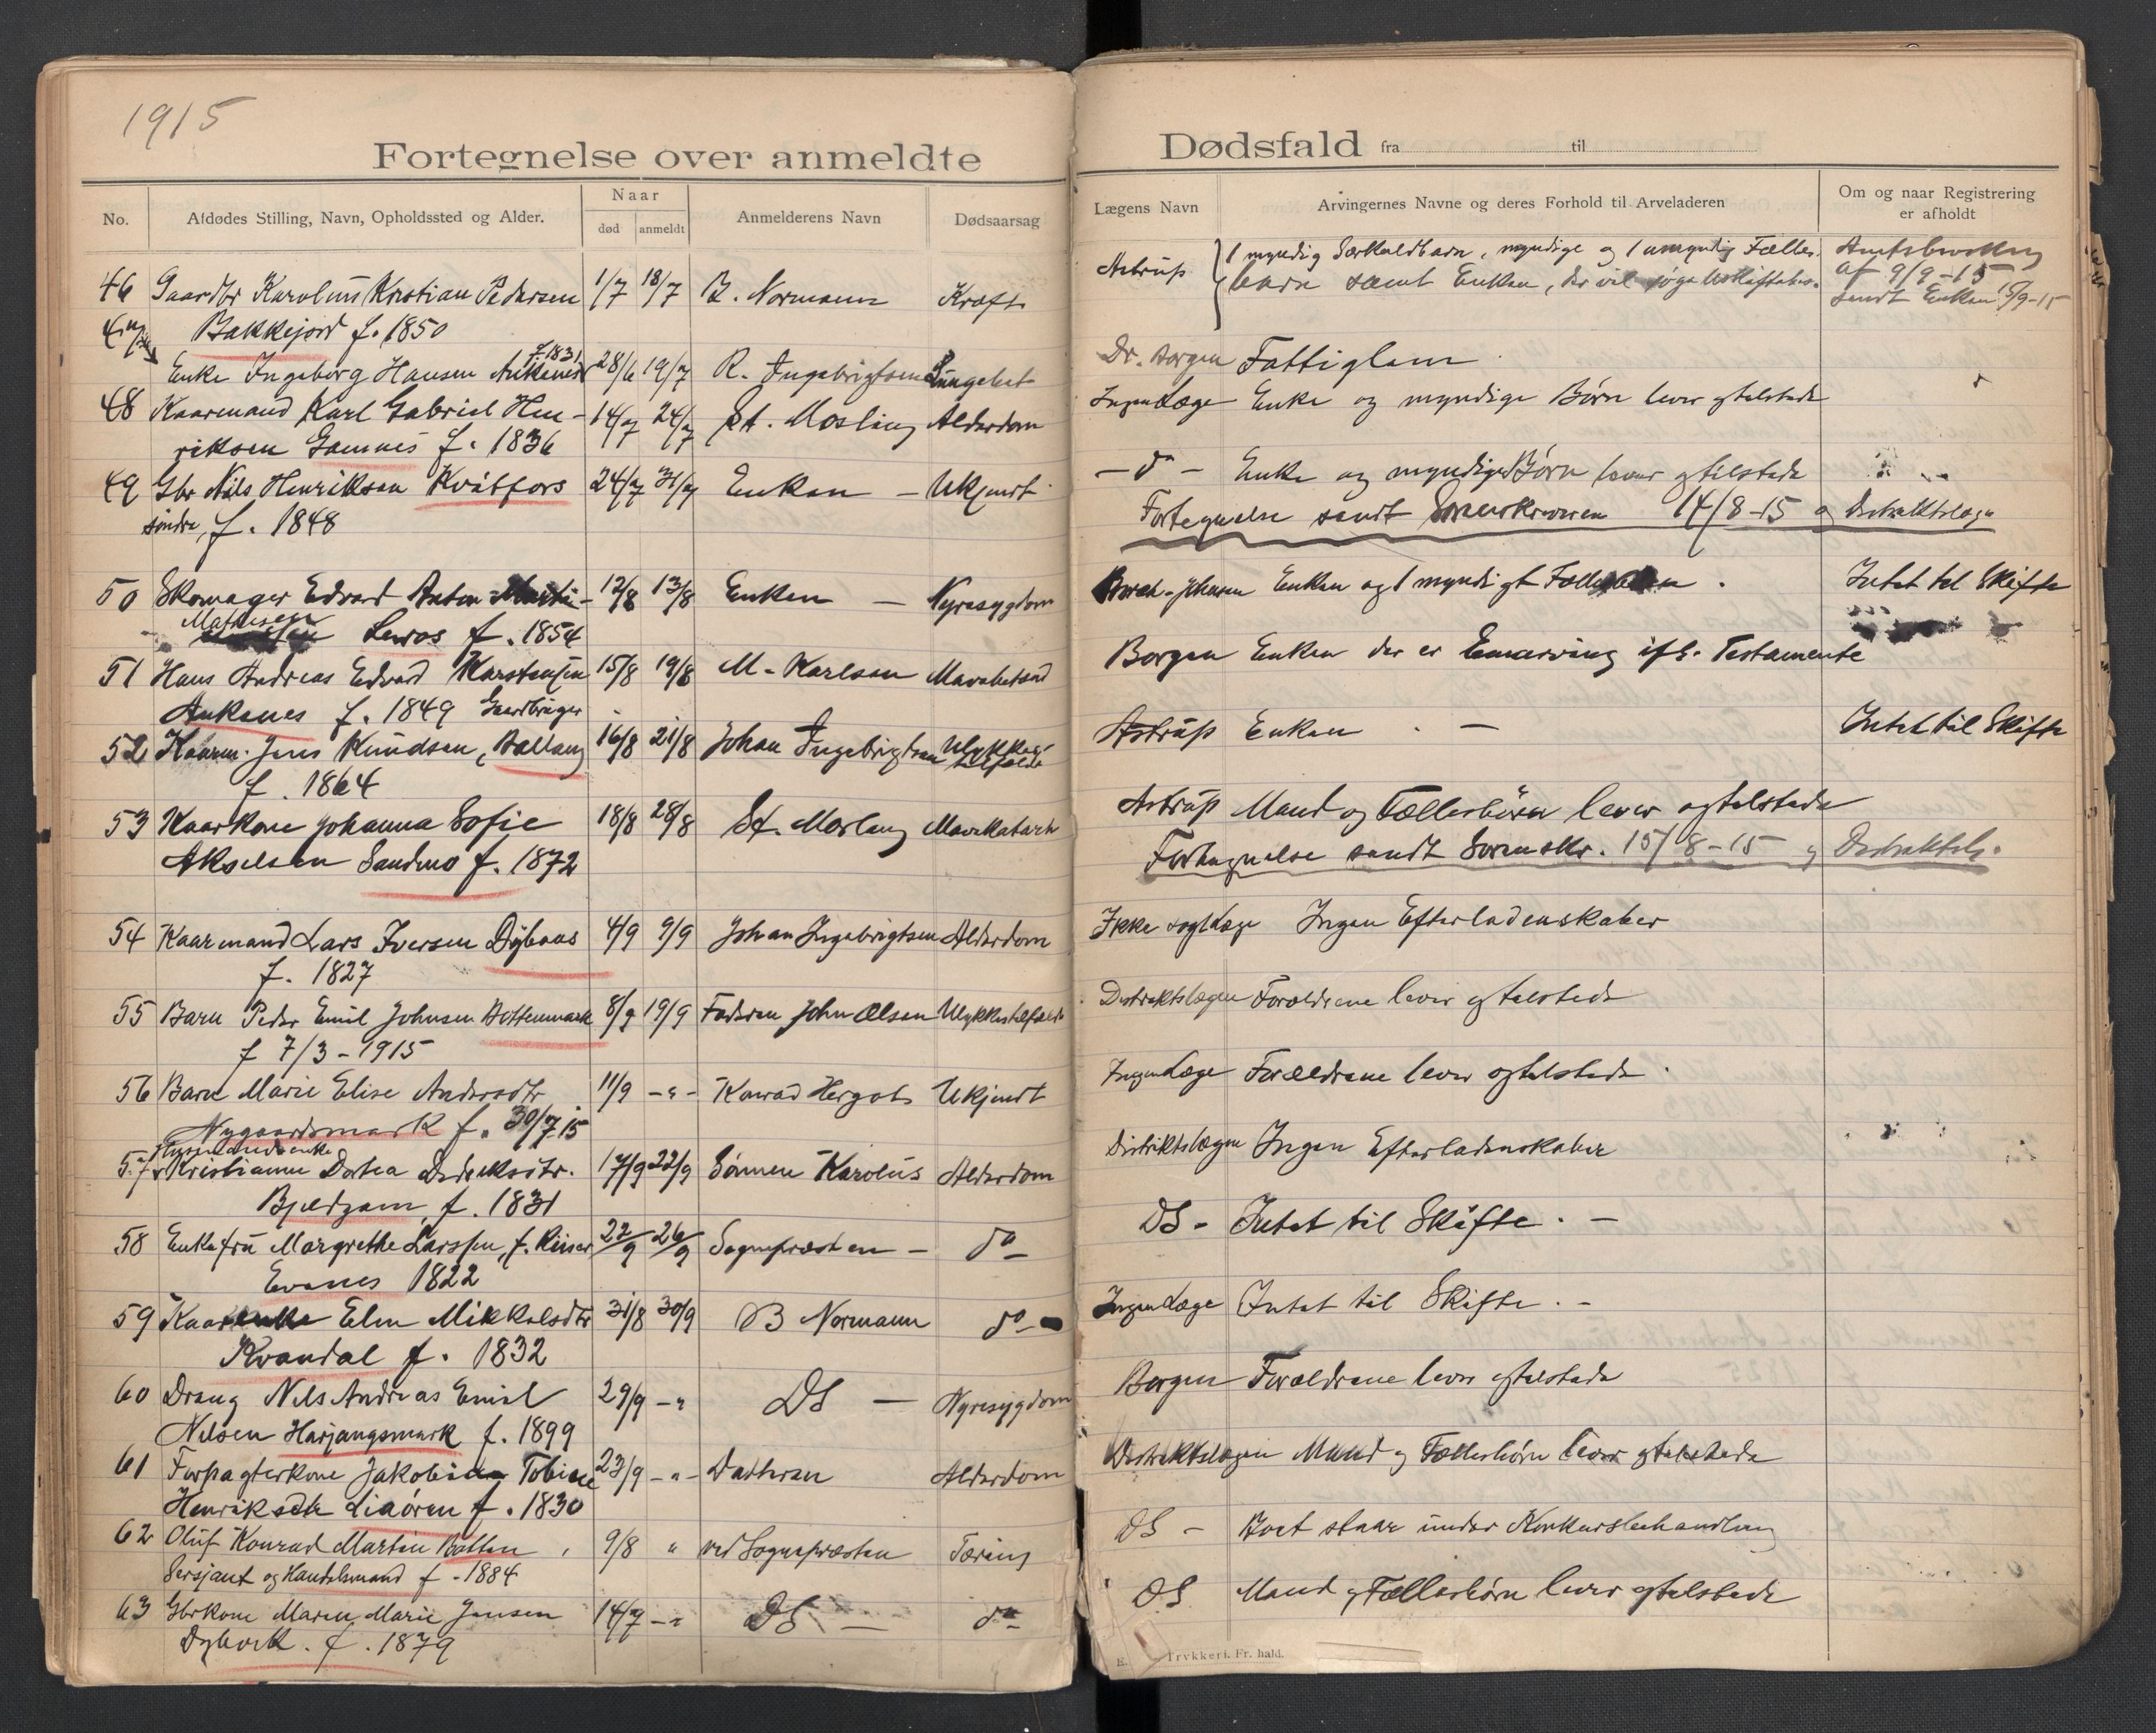 1915
Fortegnelse over anmeldte Dødsfald fra til
No.
Afdødes Stilling, Navn, Opholdssted og Alder.
Naar
død anmeldt
Anmelderens Navn
Dødsaarsag
Lægens Navn
Arvingernes Navne og deres Forhold til Arveladeren
Om og naar Registrering
er afholdt
46 Gaardbr Karolius Kristian Pedersen 1/7 18/7 B. Normann Kræft
Bakkejord f. 1850
f. 1831
Enke Ingeborg Hansen Ankenes 28/6 19/7 R. Ingebrigtsen
48 Kaarmand Karl Gabriel Hen- 14/7 24/7 St. Mosling Alderdom
riksen Gamnes f. 1836
49 Gbr Nils Henriksen Kvitfors 24/7 31/7 Enken - Ukjendt
søndre, f. 1848
50 Skomager Edvard Anton 12/8 13/8 Enken - Nyresygdom
Mathisen Leiros f. 1854
51 Hans Andreas Edvard Karstensen 15/8 19/8 M. Karlsen
Ankenes f. 1849 Gaardbruger
52 Kaarm. Jens Knudsen, Ballang 16/8 21/8 Johan Ingebrigtsen Ulykkes-
tilfælde
f. 1864
53 Kaarkone Johanna Sofie 18/8 28/8 St. Mosling Mavekatarh
Akselsen Sandmo f. 1872
54 Kaarmand Lars Iversen Dybaas 4/9 9/9 Johan Ingebrigtsen Alderdom
f. 1827
55 Barn Peder Emil Johnsen Bottenmark 8/9 19/9 Faderen John Olsen Ulykkestilfælde
f 7/3-1915
56 Barn Marie Elise Andersdtr 11/9 -"- Konrad Hergots Ukjendt
Nygaardsmark f. 30/7 15
Husmandsenke
57 Kristianne Dotea Dideriksdtr. 17/9 22/9 Sønnen Karolius Alderdom
Bjeldgam, f. 1831
58 Enkefru Margrethe Larssen, f. Kiiser 22/9 26/9 Sognepræsten - do
Evenes 1822
59 Kaarenke Elen Mikkelsdtr 31/8 30/9 B Normann do
Kvandal f. 1832
60 Dreng Nils Andreas Emil 29/9 -" DS - Nyresygdom
Nilsen Harjangsmark f. 1899
61 Forpagterkone Jakobine Tobine 23/9 -"- Datteren Alderdom
Henriksdtr Liaøren f. 1830
62 Oluf Konrad Martin Botten 9/8 " ved Sognepræsten Tæring
Sersjant og Handelsmand f. 1884
63 Gbrkone Maren Marie Jensen 14/7 -" DS - do
Dybvik. f. 1879
Astrup 1 myndig Særkuldbarn, myndige og 1 umyndig Fælles-
barn samt Enken, der vil søge Uskiftebev.
Amtsbevilling
af 9/9-15
sendt Enken 15/9-15
Dr. Borgen Fattiglem
Ingen Læge Enke og myndige Børn lever og tilstede
- do - Enke og myndige Børn lever og tilstede
Fortegnelse sendt Sorenskriveren 14/8-15 og Distriktslæge
Enken og 1 myndigt Intet til Skifte
Borgen Enken der er Enearving ifl. Testamente
Astrup Enken - Intet til Skifte
Astrup Mand og Fællesbørn lever og tilstede
Fortegnelse sendt Sorenskr. 15/8-15 og Distriktslæ.
Ikke søgt Læge Ingen Efterladenskaber
Distriktslægen Forældrene lever og tilstede
Ingen Læge Forældrene lever og tilstede
Distriktslægen Ingen Efterladenskaber
DS - Intet til Skifte. -
Ingen Læge Intet til Skifte. -
Borgen Forældrene lever og tilstede
Distriktslægen Mand og Fællesbørn lever og tilstede
DS - Boet staar under Konkursbehandling
DS Mand og Fællesbørn lever og tilstede
Trykkeri. Fr. hald.